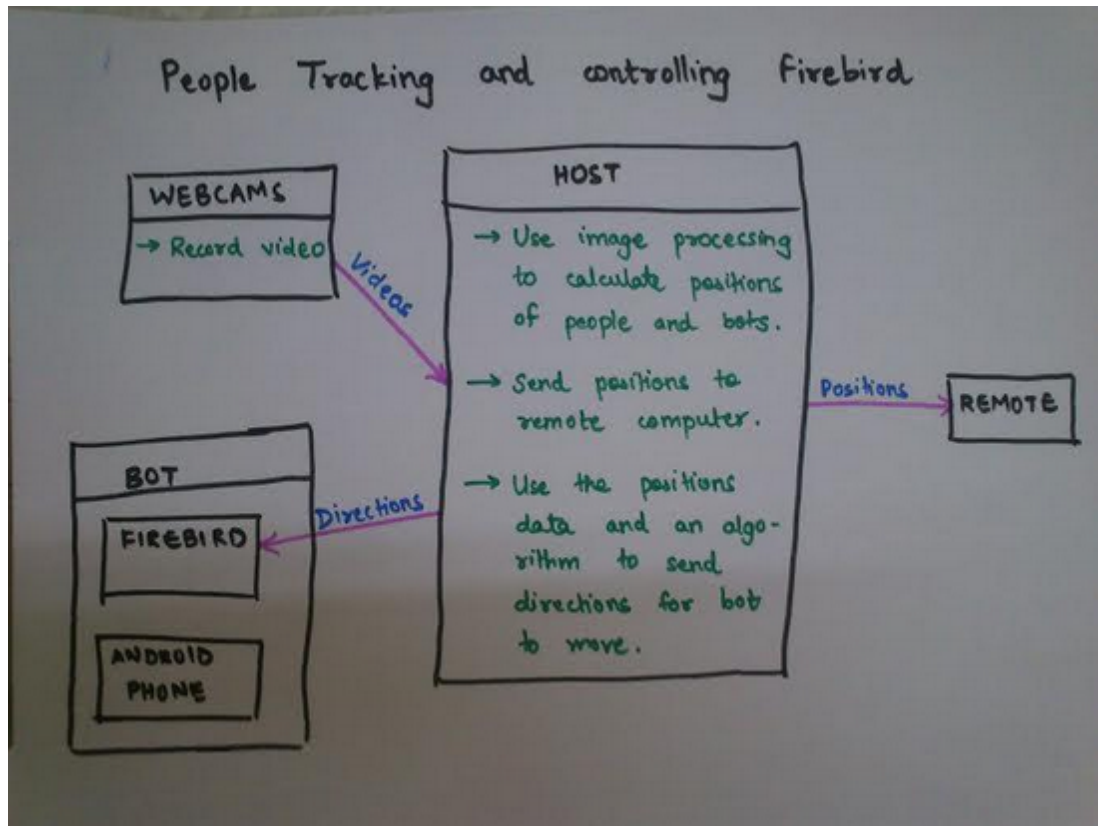 People Tracking and controlling Firebird
WEBCAMS
→ Record video
Videos
HOST
→ Use image processing
to calculate positions
of people and bots.
→ Send positions to
remote computer.
→ Use the positions
data and an algo-
rithm to send
directions for bot
to move.
Positions
REMOTE
Directions
BOT
FIREBIRD
ANDROID
PHONE